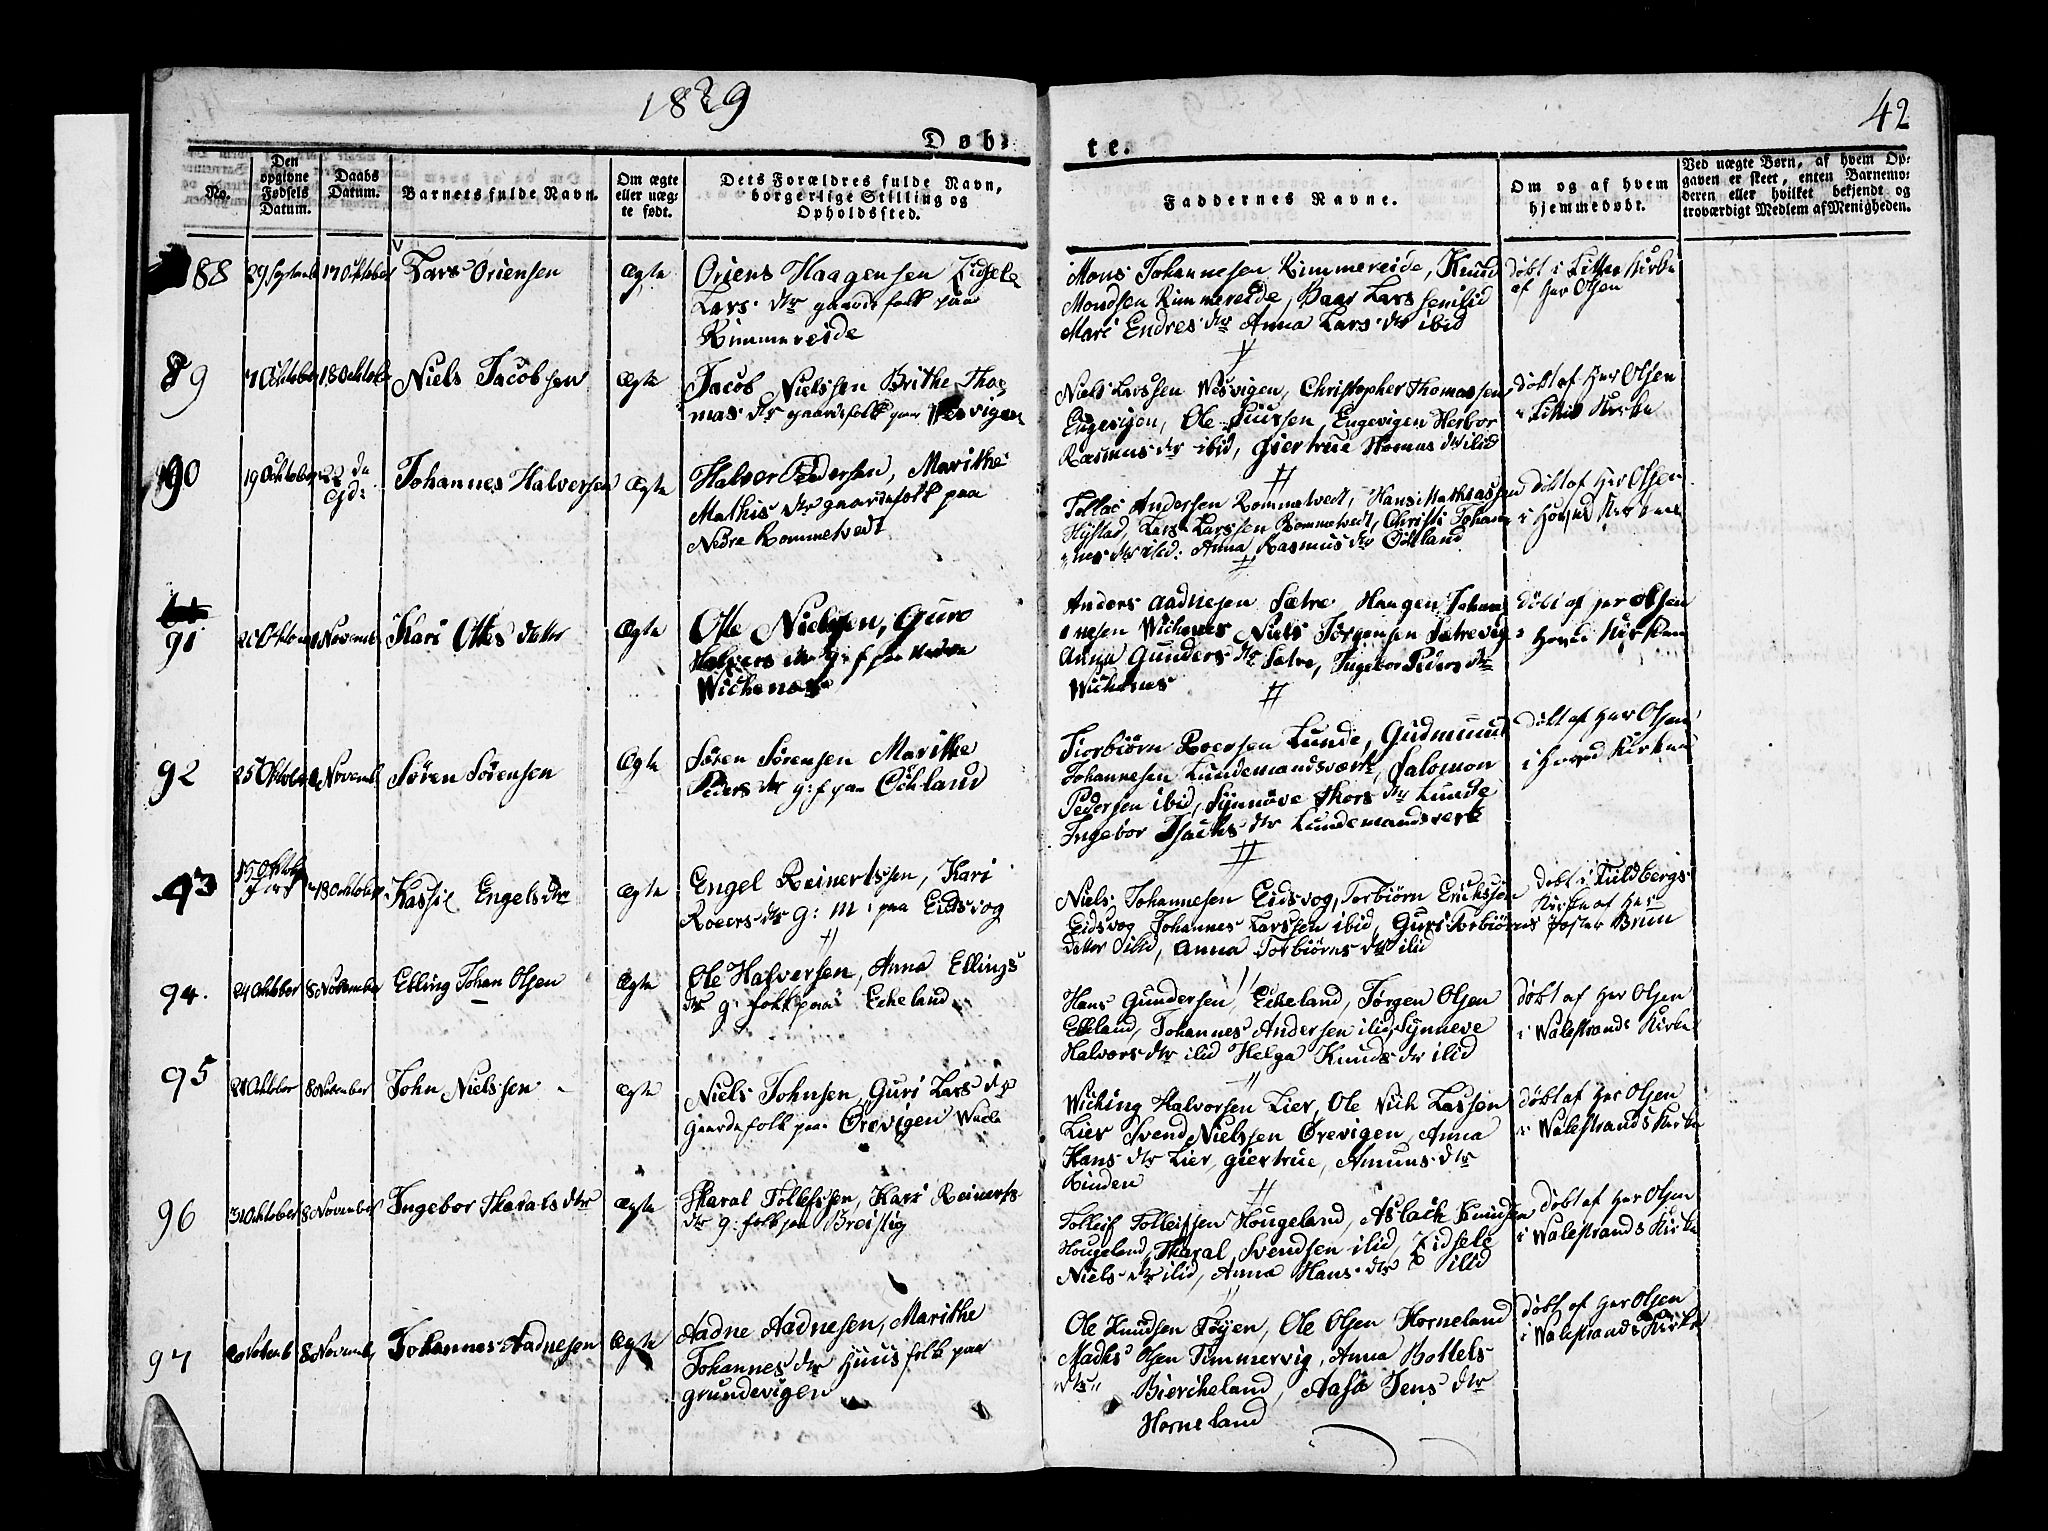 1829
42
Døb-
te.
No.
Den opgivne Fødsels Datum.
Daabs Datum.
Barnets fulde Navn.
Om ægte eller uægte født.
Dets Forældres fulde Navn, borgerlige Stilling og Opholdssted.
Faddernes Navne.
Om og af hvem hjemmedøbt.
Ved uægte Børn, af hvem Opgaven er skeet, enten Barnemoderen eller hvilket bekjendt og troværdigt Medlem af Menigheden.
88
29 Septemb
17 Oktober
Lars Oriensen
Ægte
Oriens Haagensen Zidsele
Lars dtr gaardsfolk paa
Rimmereide
Mons Johannesen Rimmereide, Knud
Mondsen Rimmereide, Baar Larssen ibid
Mari Endres dtr Anna Lars dtr ibid
døbt i Kirke
af Her Olsen
89
7 Oktober
18 Oktober
Niels Jacobsen
Ægte
Jacob Nielssen Brithe Tho-
mas dtr gaardsfolk paa Wesvigen
Niels Larssen Wesvigen, Christopher Thomassen
Engevigen, Ole Engevigen Herbor
Rasmus dtr ibid, Giertrue Thomas dtr ibid
døbt af Her Olsen
i Kirke
90
19 Oktober
Johannes Halversen
Ægte
Halvor Pedersen, Marithe
Mathis dtr gaardsfolk paa
Nedre Rommetvedt
Tollac Andersen Rommetvedt, Hans Mathiassen
Hystad, Lars Larssen Rommetvedt, Christi Johan-
nes dtr ibid: Anna Rasmus dtr Økland
døbt af Her Olsen
i Hoved Kirken
91
Oktober
1 Novemb
Kari Ottes datter
Ægte
Otte Nielsen, Guro
Halvers dtr g: f paa Nedre
Wichenes
Anders Aadnesen Sætre Haagen Johan-
nesen Wichenes Niels Jørgensen Sætrevig
Anna Gunders dtr Sætre, Ingebor Peders dtr
Wichenes
døbt af Her Olsen
i Hoved Kirken
92
25 Oktober
1 Novemb
Søren Sørensen
Ægte
Søren Sørensen Marithe
Peders dtr g: f paa Økland
Torbiørn Roersen Lunde, Gudmund
Johannesen Lundemandsverk, Salomon
Pedersen ibid, Synnøve Thors dtr Lunde
Ingebor Isachs dtr Lundemandsverk
døbt af Her Olsen
i Hoved Kirken
93
15 Oktober
18 Oktober
Kassie Engels dtr
Ægte
Engel Reinertssen, Kari
Roers dtr g: M i paa Eidsvog
Niels Johannesen Eidsvog, Torbiørn Ericksen
Eidsvog Johannes Larssen ibid, Guri Torbiørns
datter ibid, Anna Torbiørns dtr ibid
døbt i Fieldbergs
Kirke af Her
Pastor Brun
94.
24 Oktober
8 November
Elling Johan Olsen
Ægte
Ole Halversen, Anna Ellings
dtr g: folk paa Eckeland
Hans Gundersen Eckeland, Jørgen Olsen
Ekeland, Johannes Andersen ibid Synneve
Halvors dtr ibid Helga Knuds dtr ibid
døbt af Her Olsen
i Walestrands Kirke
95
Oktober
8 November
John Nielssen
Ægte
Niels Johnsen, Guri Lars dtr
Gaardsfolk paa Ørevigen
Wiching Halvorsen Lier, Ole Nich Lassen
Lier Svend Nielssen Ørevigen, Anna
Hans dtr Lier, Giertrue, Amuns dtr
Rinden
døbt af Her Olsen
i Walestrands Kirke
96
31 Oktober
8 November
Ingebor Tharals dtr
Ægte
Tharal Tollefssen, Kari Reinerts
dtr g: folk paa Breistig
Tolleif Tolleifsen Hougeland, Aslach Knudsen
Hougeland, Tharal Svendsen ibid, Zidsele
Niels dtr ibid, Anna Hans dtr ibid
døbt af Her Olsen
i Walestrands Kirke
97
Novemb
8 Novemb
Johannes Aadnesen
Ægte
Aadne Aadnesen, Marithe
Johannes dtr Huusfolk paa
Grundevigen
Ole Knudsen Tøyen, Ole Olsen Horneland
Madhs Olsen Timmervig, Anna Bottels-
dtr Biercheland, Aasa Jens dtr
Horneland
døbt af Her Olsen
i Walestrands Kirke